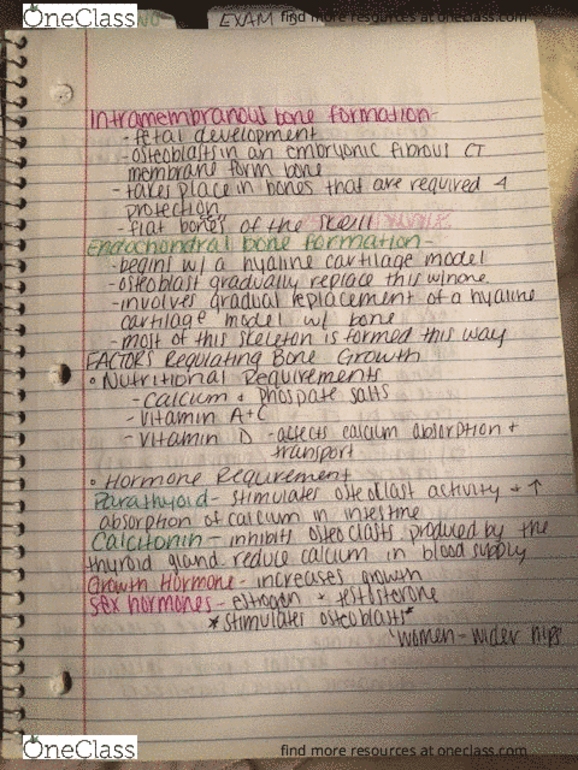 OneClass
find more resources at oneclass.com
EXAM
Intramembranous bone formation-
- fetal development
- osteoblasts in an embryonic fibrous CT
membrane form bone
- takes place in bones that are required 4
protection
- flat bones of the skell
Endochondral bone formation-
- begins w/ a hyaline cartilage model
- osteoblast gradually replace this w/none
- involves gradual replacement of a hyaline
cartilage model w/ bone
- most of this skeleton is formed this way
FACTORS Regulating Bone Growth
• Nutritional Requirements
- Calcium + Phospate salts
- Vitamin A+C
- Vitamin D - affects calcium absorption +
transport
• Hormone Requirement
Parathyoid- stimulates osteoclast activity + ↑
absorption of calcium in intestine
Calcitonin- inhibits osteoclasts, produced by the
thyroid gland. reduce calcium in blood supply
Growth Hormone- increases growth
Sex hormones- estrogen + testosterone
*stimulates osteoblasts*
women- wider hips
OneClass
find more resources at oneclass.com